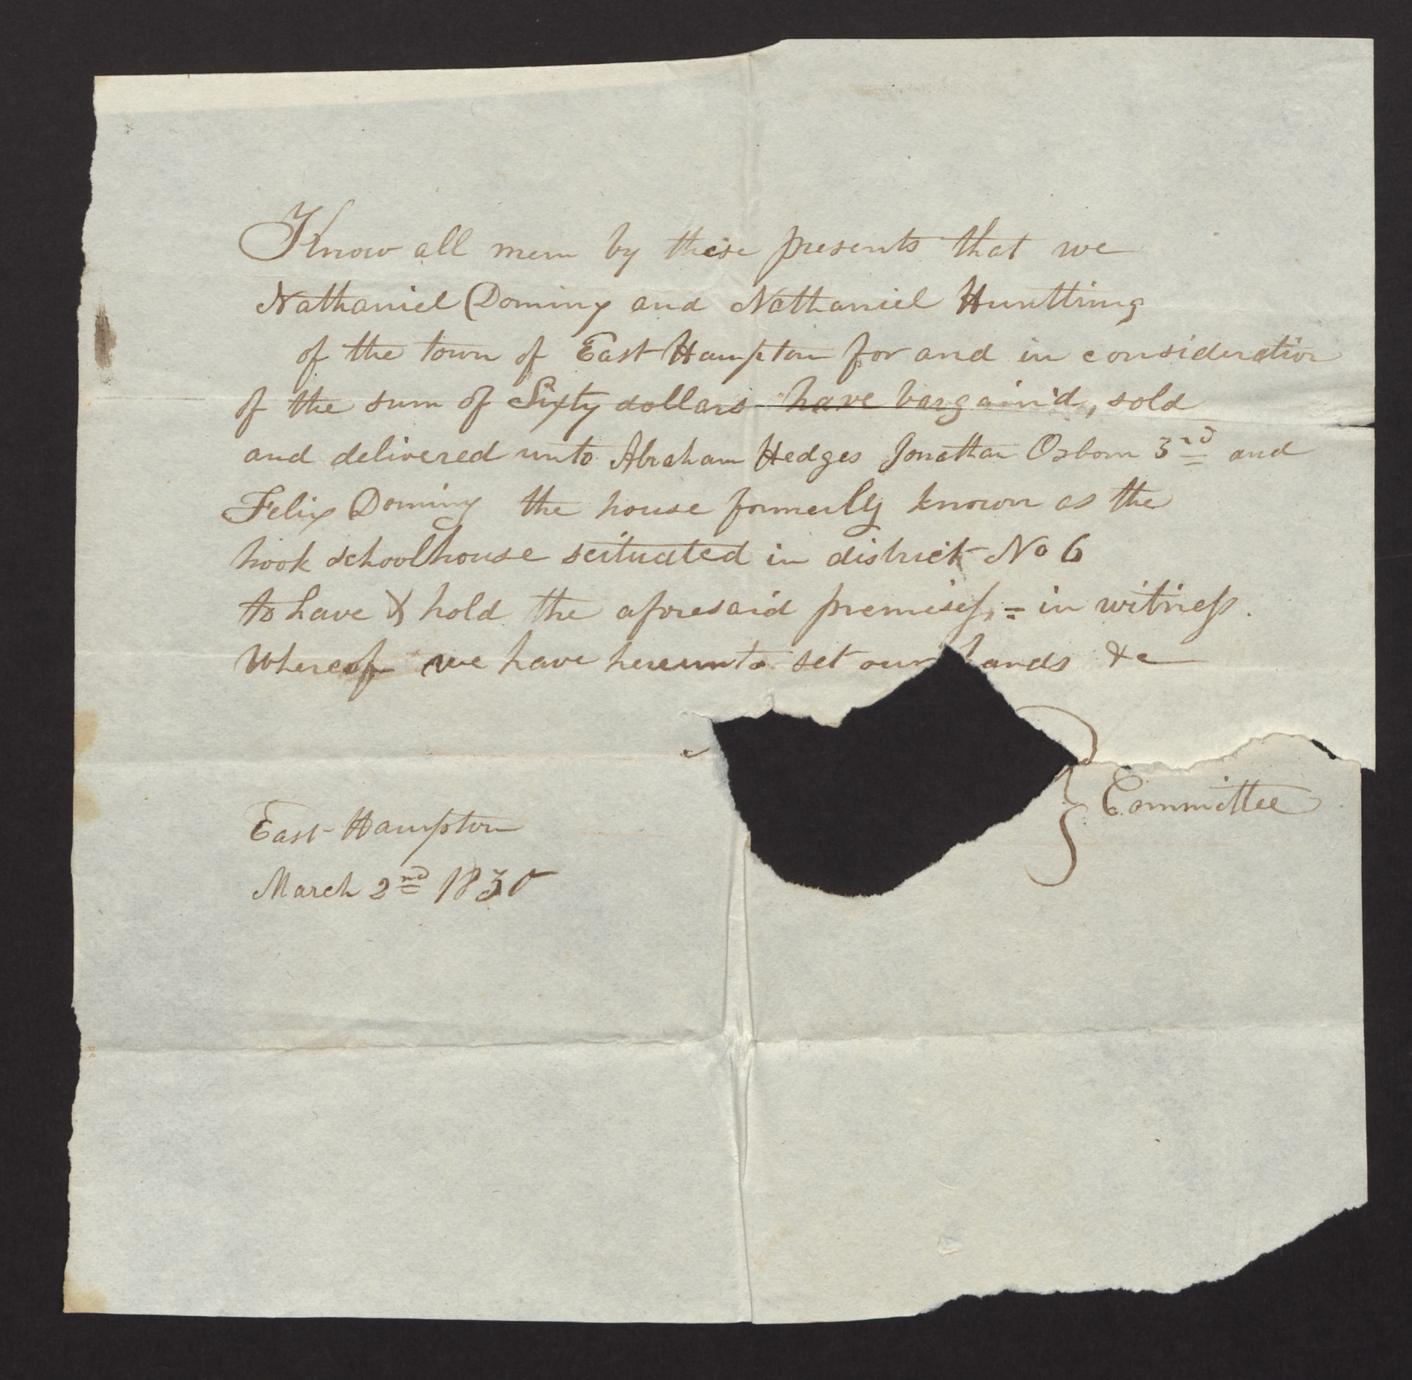 Know all men by these presents that we
Nathaniel Dominy and Nathaniel Huntting
of the town of East Hampton for and in consideration
of the sum of Sixty dollars have bargain'd, sold
and delivered unto Abraham Hedges Jonathan Osborn 3rd and
Felix Dominy the house formerly known as the
hook schoolhouse scituated in district No 6
to have & hold the aforesaid premises, = in witness.
Whereof we have hereunto set our hands &c
Committee
East Hampton
March 2nd 1830